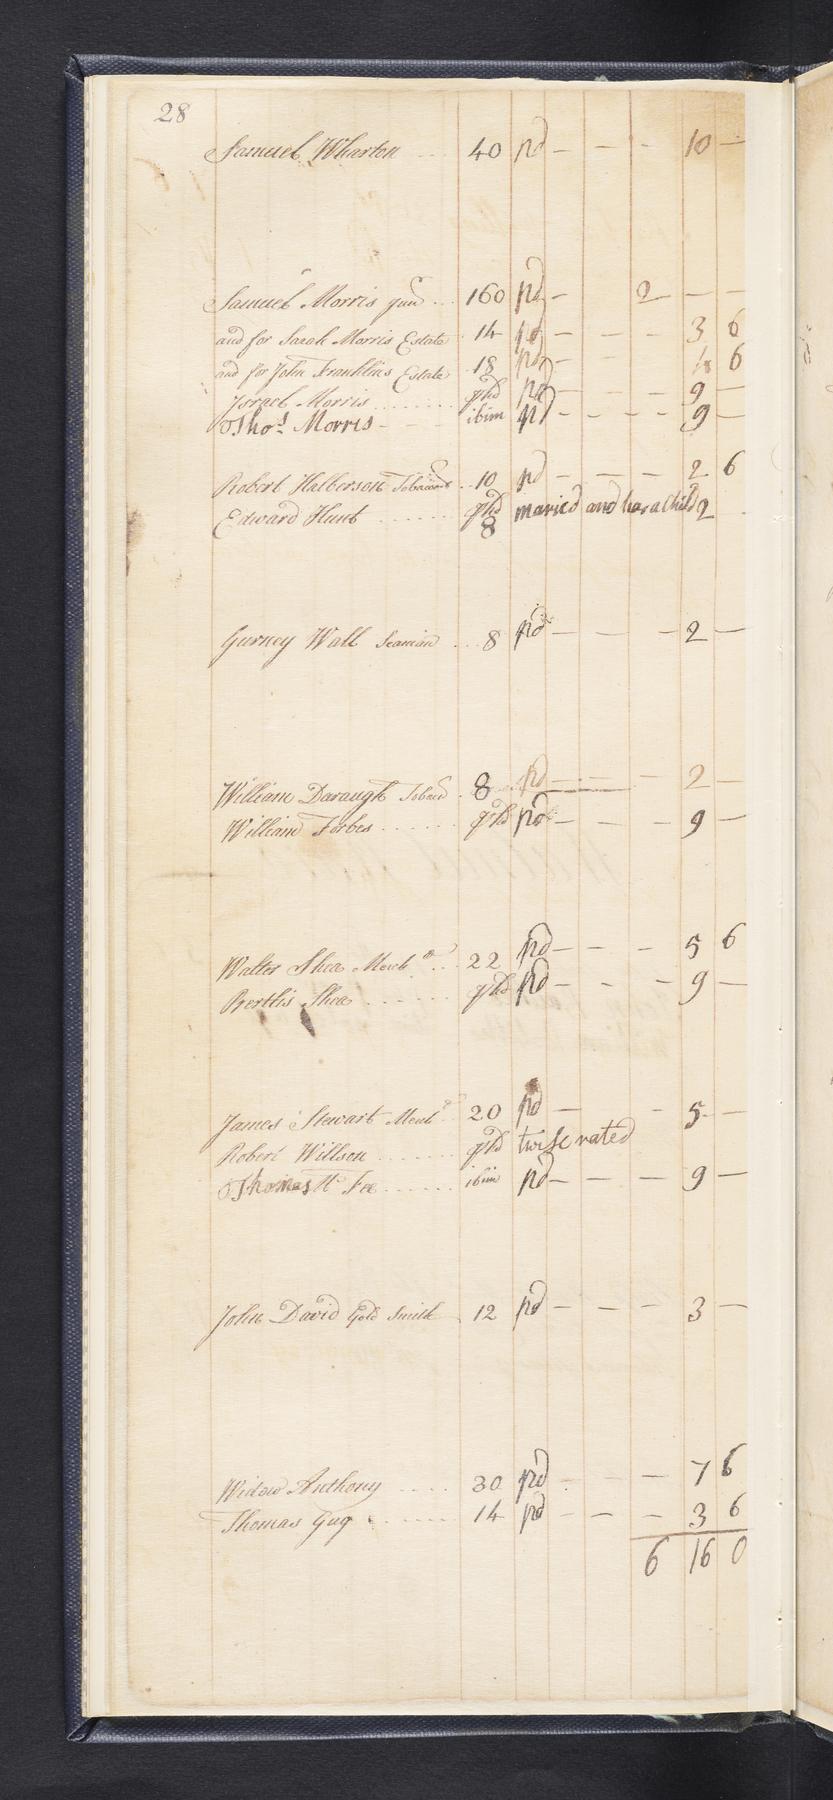 28
Samuel Wharton ... 40 pd — — — 10 —
Samuel Morris Junr ... 160 pd — 2 — —
and for Sarah Morris Estate 14 pd — — — 3 6
and for John Franklins Estate 18 pd — — 4 6
Israel Morris ........ qhd pd — — — 9 —
Thos. Morris - - - ibim pd - - - - 9 —
Robert Halberson .. 10 pd — — — 2 6
Edward Hunt ....... qhd 8 maried and has a Child 2
Gurney Wall Seaman ... 8 pd — — — 2 —
William Daraugh . 8 pd — — — 2 —
William Forbes ...... qhd pd — — — 9 —
Walter Shea Mercht ... 22 pd — — — 5 6
Shea ....... qhd pd — — — 9 —
James Stewart Mercht .. 20 pd — — 5 —
Robert Willson ....... qhd twise rated
Thomas Mc Fee ...... ibim pd — — — 9 —
John David Gold Smith 12 pd — — — 3 —
Widow Anthony .... 30 pd — — 7 6
Thomas Guy ...... 14 pd — — — 3 6
6 16 0